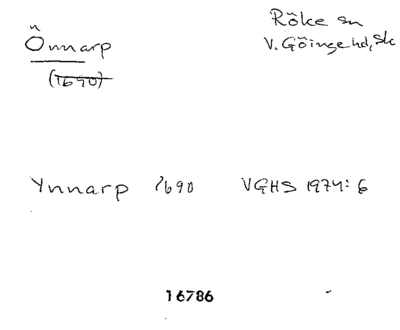 Önnarp
Röke sn
V. Göinge hd, Sk
(1690)
Ynnarp 1690 VGHS 1974: 6
16786